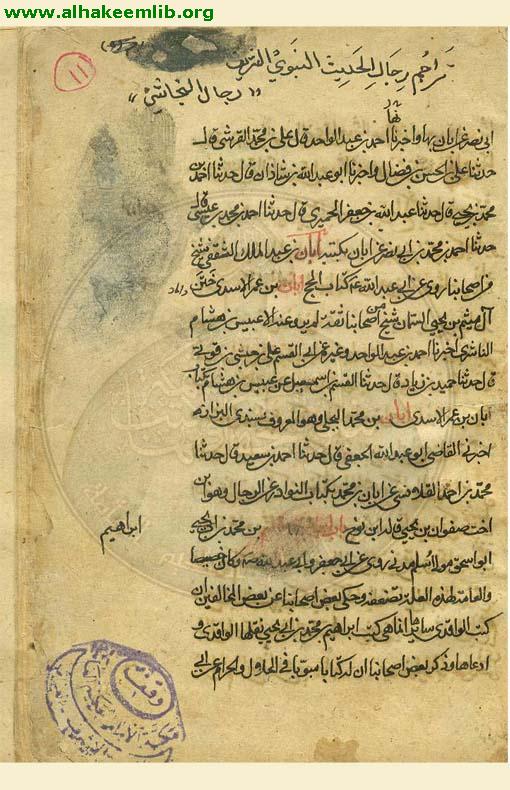 www.alhakeemlib.org
١١
تراجم رجال الحديث النبوي الشريف
"رجال النجاشي"
ابى نصر عن ابان بها واخبرنا احمد بن عبد الواحد قال على بن محمد القرشى قال
حدثنا على بن الحسن بن فضال واخبرنا ابو عبد الله بن شاذان قال حدثنا احمد بن
محمد بن يحيى قال حدثنا عبد الله بن جعفر الحميرى قال حدثنا احمد بن محمد بن عيسى قال
حدثنا احمد بن محمد بن ابى نصر عن ابان بكتبه ابان بن عبد الملك الثقفى شيخ
من اصحابنا روى عن ابى عبد الله ع كتاب الحج ابان بن عمر الاسدى ختن
داماد
آل ميثم بن يحيى التمار شيخ من اصحابنا ثقة لم يرو عنه الا عبيس بن هشام
الناشرى اخبرنا احمد بن عبد الواحد وغيره عن ابى القسم على بن حبشى بن قونى
قال حدثنا حميد بن زياد قال حدثنا القسم بن اسمعيل عن عبيس بن هشام
ابان بن عمر الاسدى ابان بن محمد البجلى وهو المعروف بسندى البزاز
اخبرنى القاضى ابو عبد الله الجعفى قال حدثنا احمد بن سعيد قال حدثنا
محمد بن احمد القلانسى عن ابان بن محمد بكتاب النوادر عن الرجال وهو ابن
اخت صفوان بن يحيى قاله ابن نوح بن محمد بن ابى يحيى
ابراهيم
ابو اسحق مولا اسلم مدنى روى عن ابى جعفر وابى عبد الله وكان خصيصا
والعامة لهذه العلة تضعفه وحكى بعض اصحابنا عن بعض المخالفين ان
كتب الواقدى سايرها انما هى كتب ابراهيم بن محمد بن ابى يحيى نقلها الواقدى و
ادعاها وذكر بعض اصحابنا ان له كتابا مبوبا فى الحلال والحرام عن ابى
وقف